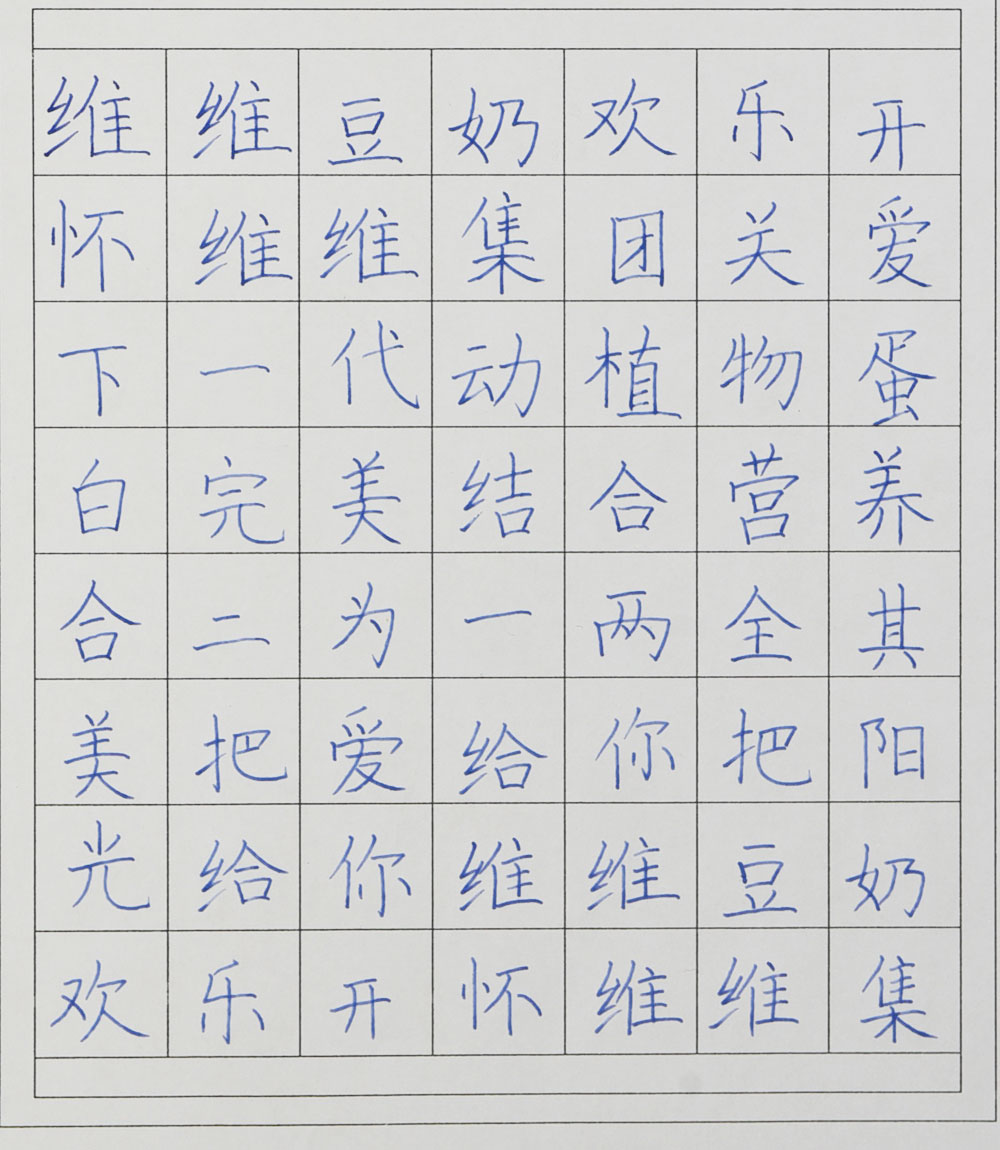 维维豆奶欢乐开
怀维维集团关爱
下一代动植物蛋
白完美结合营养
合二为一两全其
美把爱给你把阳
光给你维维豆奶
欢乐开怀维维集